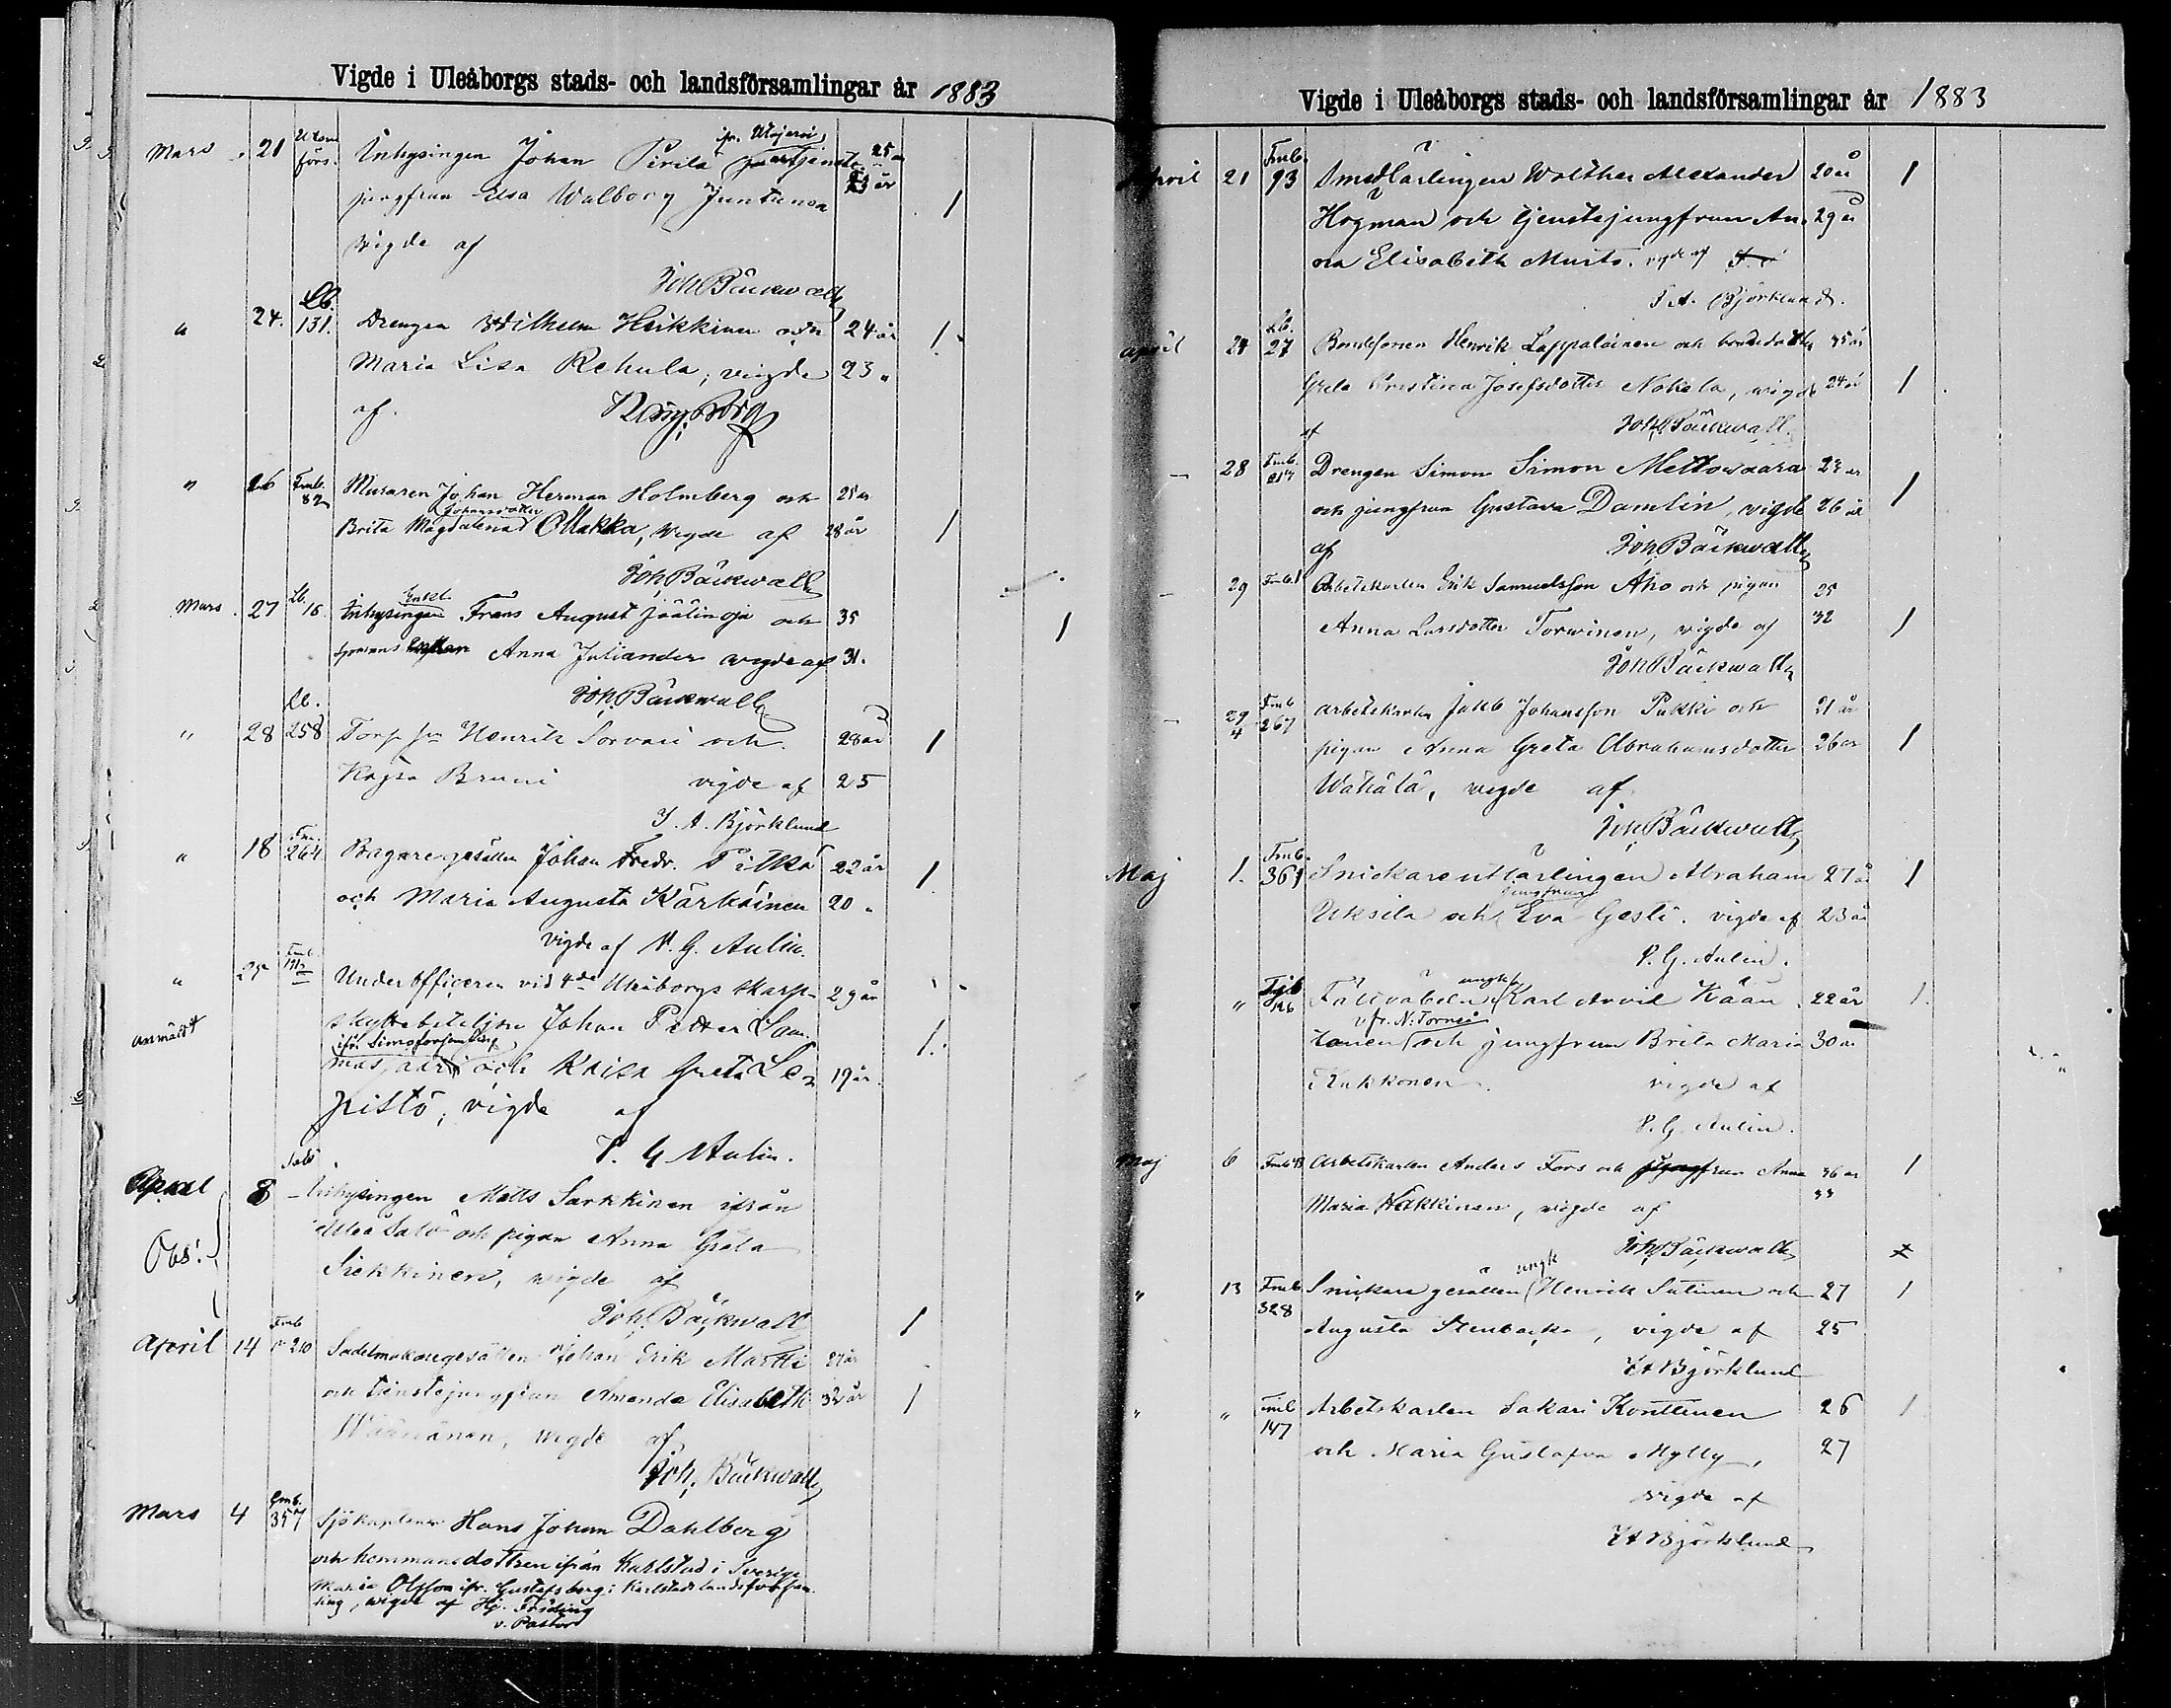 Vigde i Uleåborgs stads- och landsförsamlingar år 1883
Mars 21 Utom förs. Inhysingen Johan Pirilä 25
jungfrun Elsa Walborg Juntunen 23 år 1
wigde af
Joh. Bäckwall
" 24. Lb. 131. Drengen Wilhelm Heikkinen och 24 år 1.
Maria Lisa Rehula, vigde 23 "
af.
" 26 Fmb. 82 Muraren Johan Herman Holmberg och 25 år
Johansdotter
Brita Magdalena Ollakka, wigde af 28 år 1
Joh. Bäckwall
Enkl.
Mars 27 Lb. 16. Inhysingen Frans August Jäälinoja och 35 1
Anna Juliander wigde af 31.
Joh. Bäckwall
" 28 Lb. 258 Torp. sn Henrik Sorvari och 28 år 1
Kajsa Bruni vigde af 25
J. A. Björklund
" 18 264 Bagaregesällen Johan Fredr. Pitkä 22 år 1
och Maria Augusta Kärkäinen 20 "
vigde af P. G. Aulin.
" 25 Fmb. Underofficeren vid 4de Uleåborgs skarp- 29 år
anmäldt skyttebataljon Johan Petter Lam-
ifr. Simo församling 1.
och Kaisa Greta Le- 19 år.
pistö; vigde af
P. G. Aulin.
April 8 Salo Inhysingen Matts Sarkkinen ifrån
Obs! Salo och pigan Anna Greta
Siekkinen, wigde af
Joh. Bäckwall 1
April 14 Fmb 210 Sadelmakaregesällen Johan Erik Martti 27 år
och tjenstejungfrun Amanda Elisabeth 32 år 1
wigde af
Joh. Bäckwall
Mars 4 Fmb. 357 Sjökaptenen Hans Johan Dahlberg
och hemmansdottren ifrån Karlstad i Sverige
Maria Olsson ifr. Gustafsberg i Karlstads landsförsam-
ling, wigde af Hj. Fröding
v. Pastor
Vigde i Uleåborgs stads- och landsförsamlingar år 1883
April 21 Fmb. 93 Smedlärlingen Walther Alexander 20 år 1
Högman och tjenstejungfrun An- 29 år
na Elisabeth Musto. vigde af
J A. Björklund.
April 24 Lb. 27 Bondesonen Henrik Lappalainen och bondedotter
Greta Kristina Josefsdotter Nokela, wigde 24 år 1
af Joh. Bäckwall.
— 28 Fmb. 217 Drengen Simon Simon Mettowaara 23 år
och jungfrun Gustava Damlin, vigde 26 år 1
af Joh. Bäckwall
— 29 Fmb. 1 Arbetskarlen Erik Samuelsson Aho och pigan 25
Anna Larsdotter Torwinen, vigde af 32 1
Joh. Bäckwall
— 29/4 Fmb 267 Arbetskarlen Jakob Johansson Pukki och 21 år
pigan Anna Greta Abrahamsdotter 26 år 1
Wähälä, wigde af
Joh. Bäckwall
Maj 1. Fmb. 361 Snickareutlärlingen Abraham 27 år 1
jungfrun
Uksila och Eva Gesti. vigde af 23 år
P. G. Aulin.
" Karl Arvid Kään- 22 år 1.
v fr. N: Torneå
tänen och jungfrun Brita Maria 30 år
Kukkonen. vigde af
P. G. Aulin.
Maj 6 Fmb Arbetskarlen Anders Fors och jungfrun Anna 36 år 1
Maria Häkkinen, wigde af 33
Joh. Bäckwall
ungk
" 13 Fmb 328 Snickare gesällen Henrik Sutinen och 27 1
Augusta Stenbacka, vigde af 25
J A Björklund
" " Fmb 147 Arbetskarlen Sakari Konttinen 26 1
och Maria Gustafva Mylly, 27
vigde af
J A Björklund